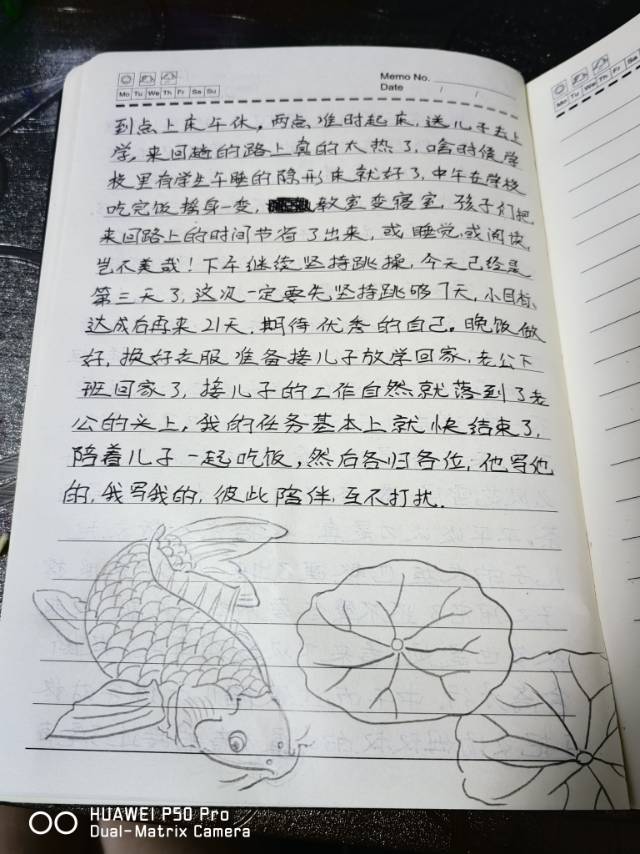 Memo No.
Mo Tu We Th Fr Sa Su
Date / /
到点上床午休，两点准时起床，送儿子去上
学，来回趟的路上真的太热了，啥时侯学
校里有学生午睡的隐形床就好了，中午在学校
吃完饭摇身一变，教室变寝室，孩子们把
来回路上的时间节省了出来，或睡觉，或阅读，
岂不美哉！下午继续坚持跳操，今天已经是
第三天了，这次一定要先坚持跳够7天，小目标，
达成后再来21天，期待优秀的自己。晚饭做
好，换好衣服准备接儿子放学回家，老公下
班回家了，接儿子的工作自然就落到了老
公的头上，我的任务基本上就快结束了，
陪着儿子一起吃饭，然后各归各位，他写他
的，我写我的，彼此陪伴，互不打扰.
HUAWEI P50 Pro
Dual-Matrix Camera